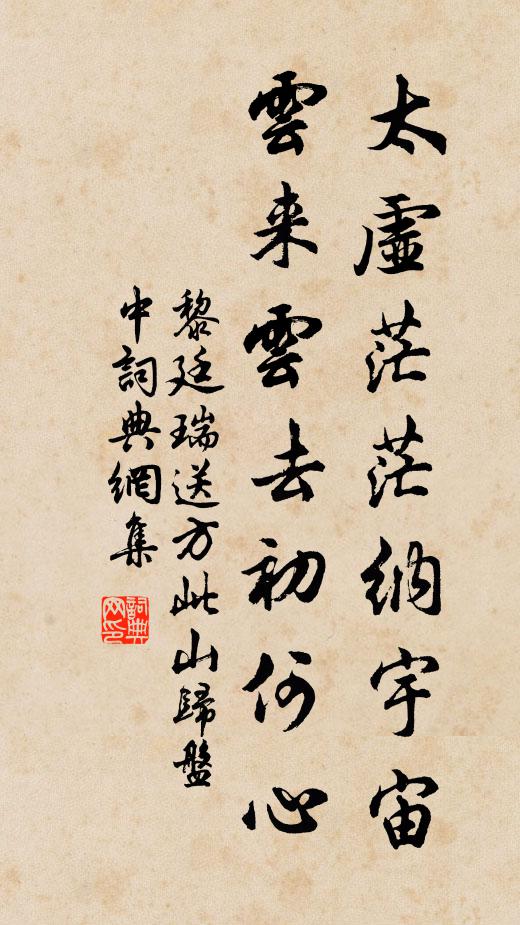 太虛茫茫納宇宙
雲来雲去初何心
黎廷瑞送方此山歸盤
中詞典網集
詞典
网印